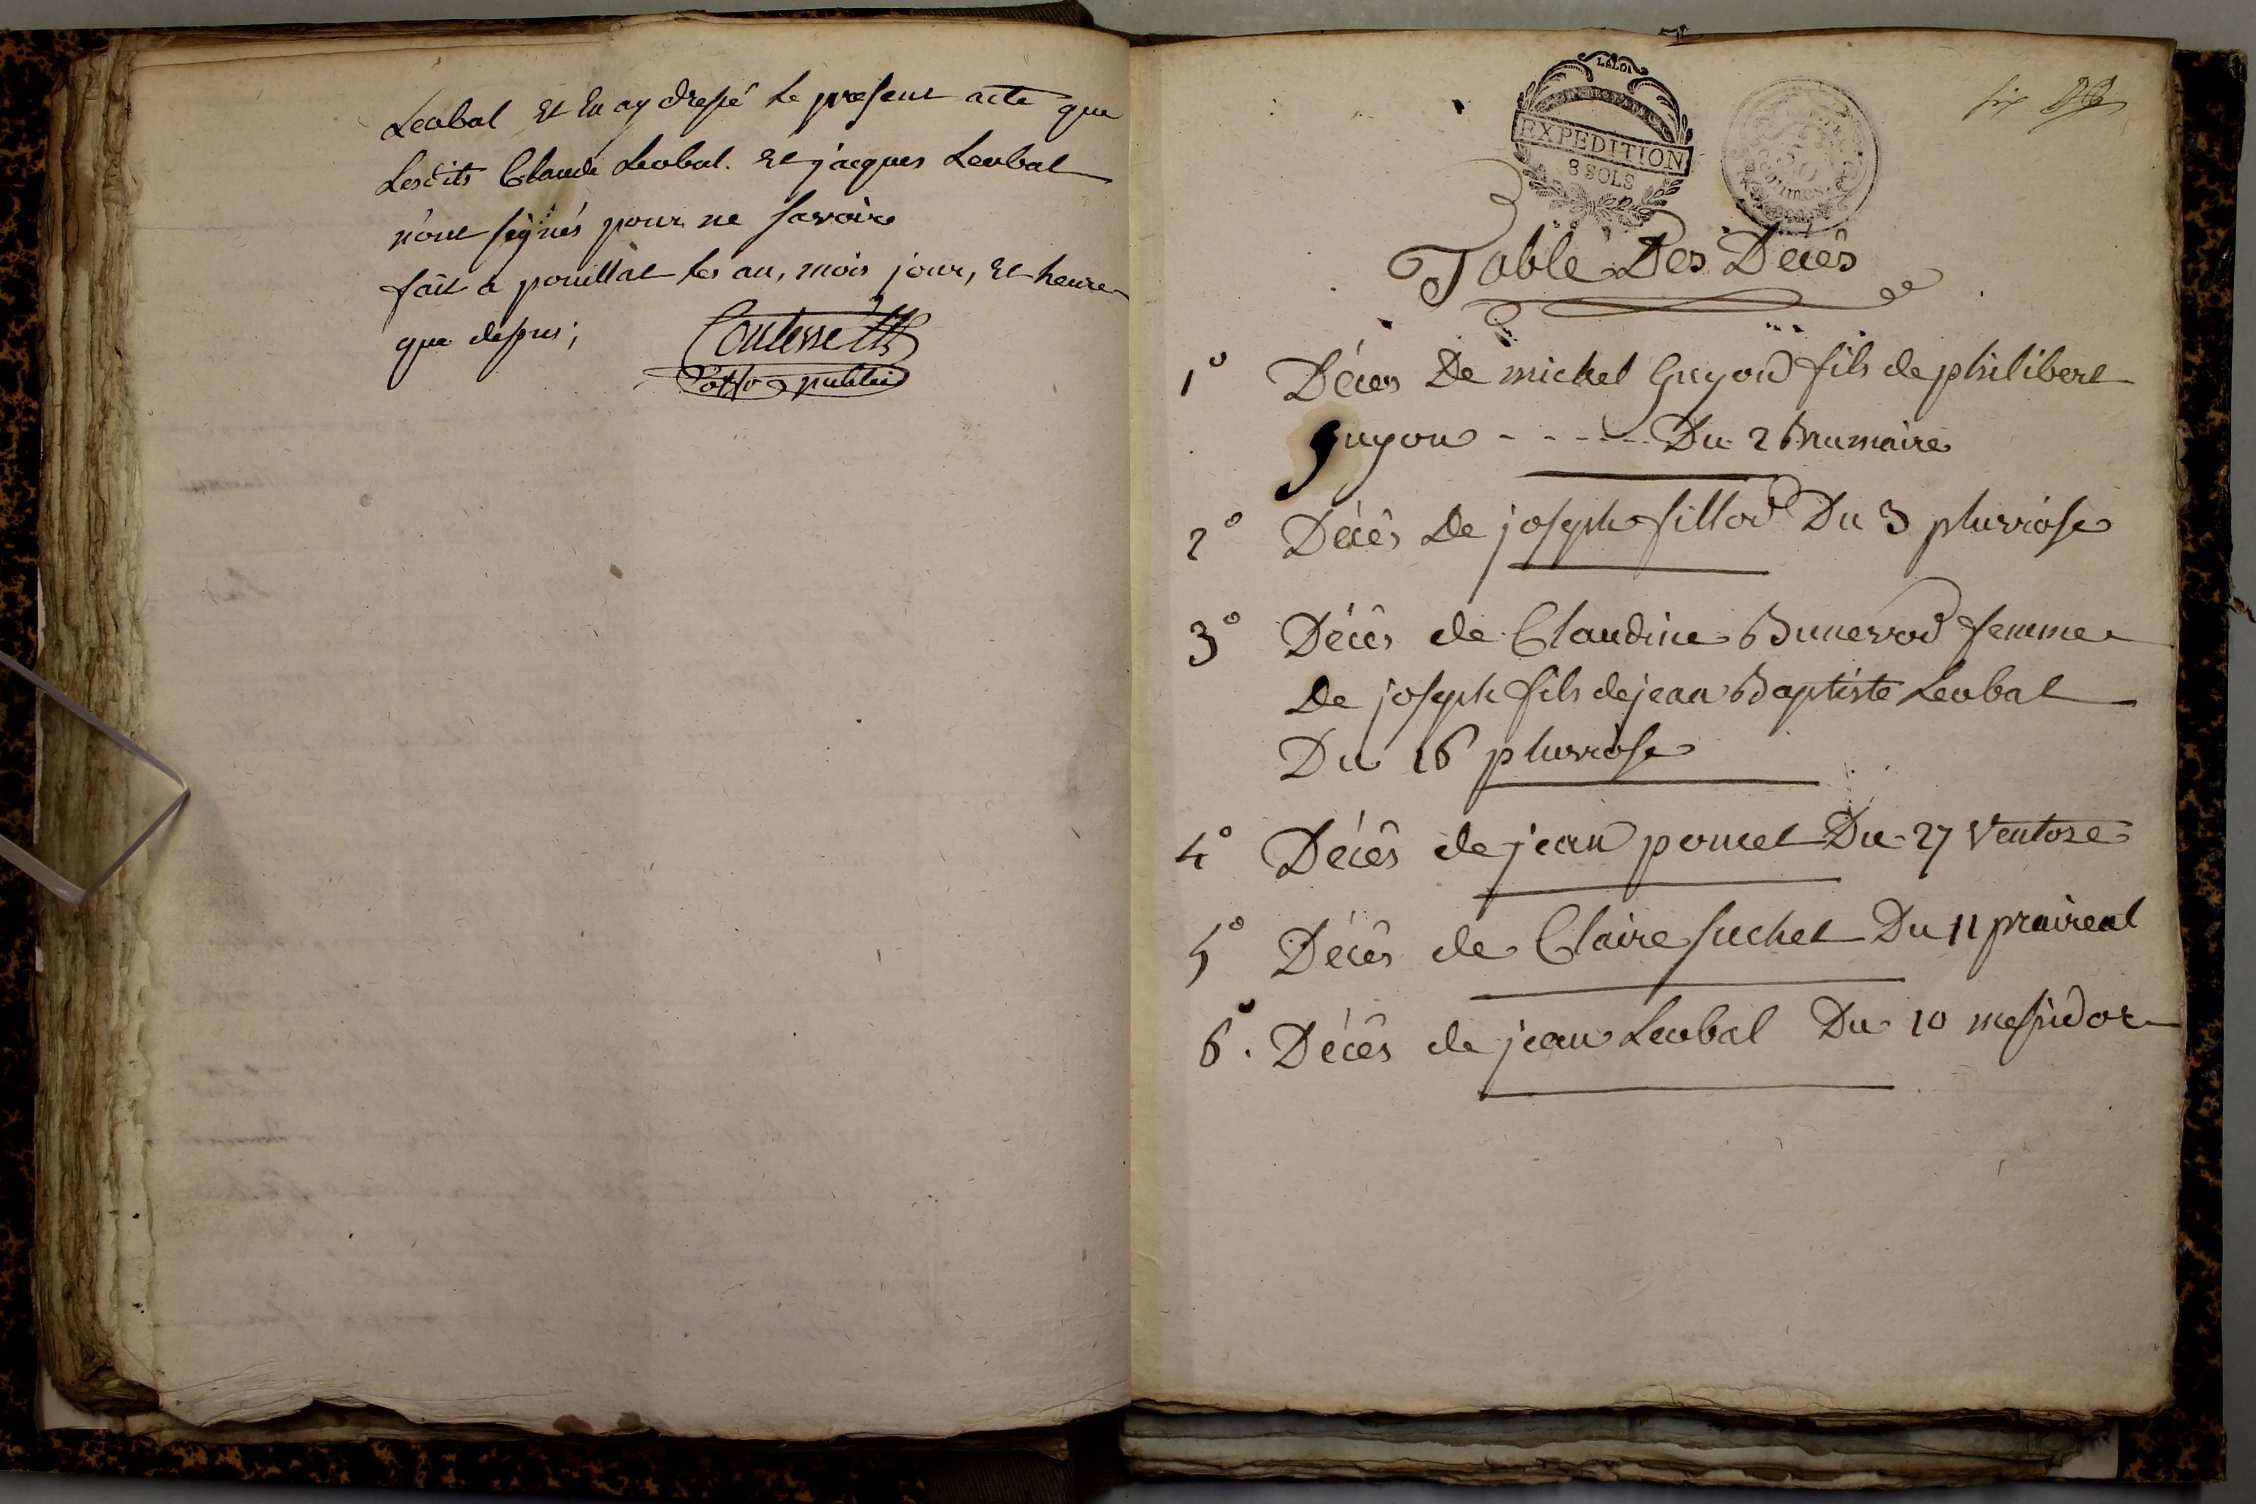 Leobal Et En ay dressé le present acte que
Lesdits Claude Leobal. Et jacques Leobal
n'ont signés pour ne savoire
fait a pouillat les an, mois jour, Et heure
que dessus;
off. public
LA LOI
EXPEDITION
8 SOLS
six
Table Des Décès
1° Décès De michel Guyod fils de philibert
guyod - - - - - Du 2 Brumaire
2° Décès De joseph fillod Du 3 pluviose
3° Décès de Claudine Bunevod femme
De joseph fils de jean Baptiste Leobal
Du 16 pluviose
4° Décès de jean poncet Du 27 Ventose
5° Décès de Claire suchet Du 11 praireal
6°. Décès de jean Leobal Du 10 messidor